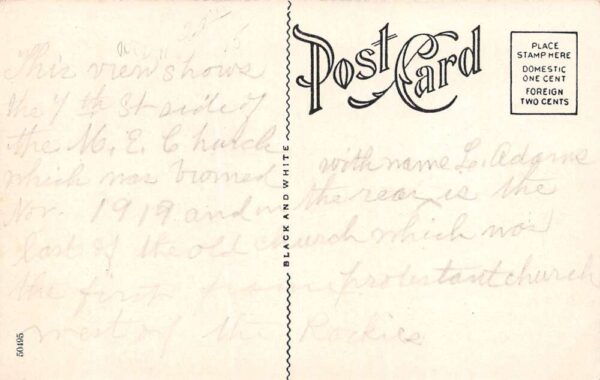 Post Card
PLACE
STAMP HERE
DOMESTIC
ONE CENT
FOREIGN
TWO CENTS
BLACK AND WHITE
50495
This view shows
the 7th St side of
the M. E. Church
which was
with name L. Adams
Nov. 1919 and in the rear is the
last of the old church which was
the first protestant church
west of the Rockies